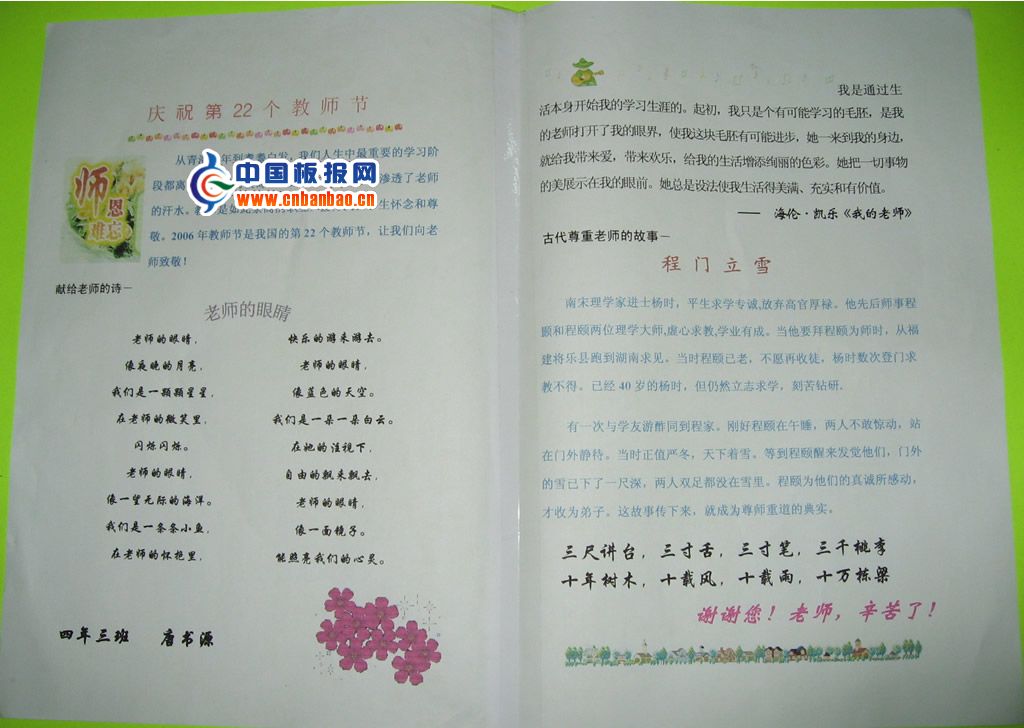 庆祝第22个教师节
师恩难忘
从青
年到
白发，我们人生中最重要的学习阶
段都离
渗透了老师
的汗水。
生怀念和尊
敬。2006年教师节是我国的第22个教师节，让我们向老
师致敬！
中国板报网
www.cnbanbao.cn
献给老师的诗—
老师的眼睛
老师的眼睛，
像夜晚的月亮，
我们是一颗颗星星，
在老师的微笑里，
闪烁闪烁。
老师的眼睛，
像一望无际的海洋。
我们是一条条小鱼，
在老师的怀抱里，
快乐的游来游去。
老师的眼睛，
像蓝色的天空。
我们是一朵一朵白云。
在她的注视下，
自由的飘来飘去，
老师的眼睛，
像一面镜子。
能照亮我们的心灵。
四年三班 唐书源
我是通过生
活本身开始我的学习生涯的。起初，我只是个有可能学习的毛胚，是我
的老师打开了我的眼界，使我这块毛胚有可能进步，她一来到我的身边，
就给我带来爱，带来欢乐，给我的生活增添绚丽的色彩。她把一切事物
的美展示在我的眼前。她总是设法使我生活得美满、充实和有价值。
—— 海伦·凯乐《我的老师》
古代尊重老师的故事—
程门立雪
南宋理学家进士杨时，平生求学专诚,放弃高官厚禄。他先后师事程
颢和程颐两位理学大师,虚心求教,学业有成。当他要拜程颐为师时，从福
建将乐县跑到湖南求见。当时程颐已老，不愿再收徒，杨时数次登门求
教不得。已经40岁的杨时，但仍然立志求学，刻苦钻研.
有一次与学友游酢同到程家。刚好程颐在午睡，两人不敢惊动，站
在门外静待。当时正值严冬，天下着雪。等到程颐醒来发觉他们，门外
的雪已下了一尺深，两人双足都没在雪里。程颐为他们的真诚所感动，
才收为弟子。这故事传下来，就成为尊师重道的典实。
三尺讲台，三寸舌，三寸笔，三千桃李
十年树木，十载风，十载雨，十万栋梁
谢谢您！老师，辛苦了！